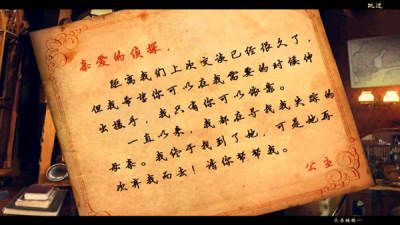 跳过
亲爱的侦探，
距离我们上次交谈已经很久了，
但我希望你可以在我需要的时候伸
出援手，我只有你可以依靠。
一直以来，我都在寻找我失踪的
母亲。我终于找到了她，可是她再
次弃我而去！请你帮帮我。
公主
点击继续…